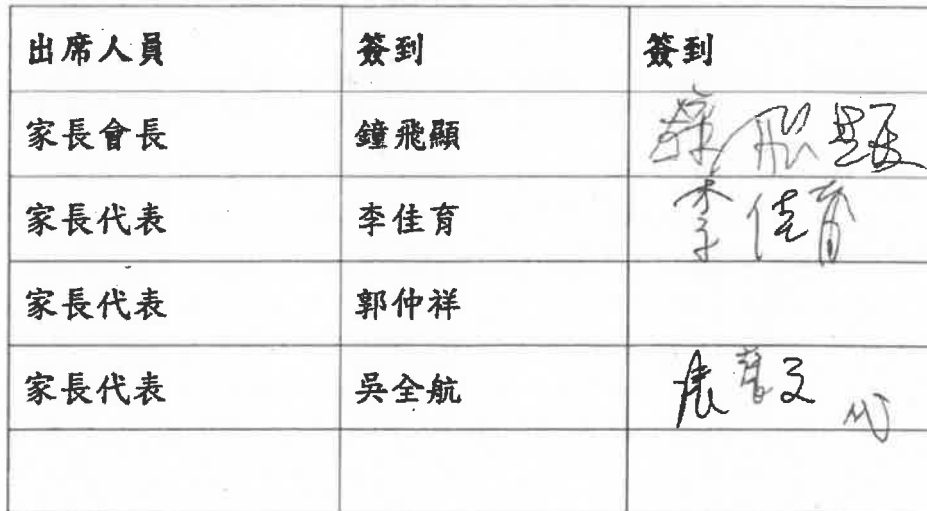 出席人員 簽到 簽到
家長會長 鐘飛顯
家長代表 李佳育 李佳育
家長代表 郭仲祥
家長代表 吳全航